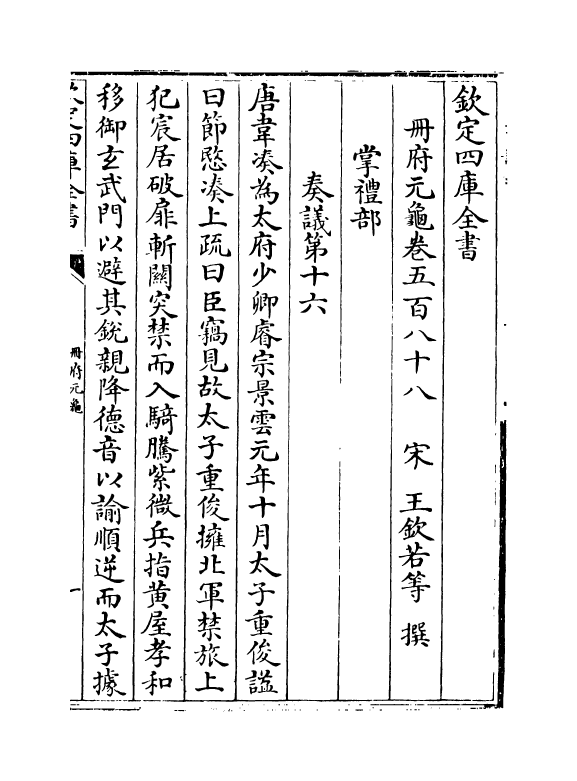 欽定四庫全書
冊府元龜卷五百八十八　宋　王欽若等　撰
掌禮部
奏議第十六
唐韋湊為太府少卿睿宗景雲元年十月太子重俊諡
曰節愍湊上疏曰臣竊見故太子重俊擁北軍禁旅上
犯宸居破扉斬關突禁而入騎騰紫微兵指黄屋孝和
移御玄武門以避其銳親降德音以諭順逆而太子據
欽定四庫全書
冊府元龜
一